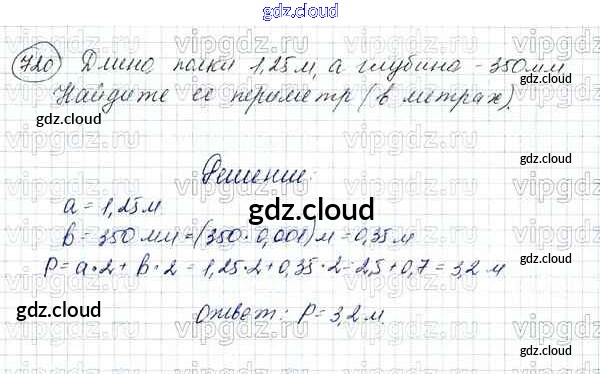 gdz.cloud
720 Длина полки 1,25 м, а глубина - 350 мм
Найдите ее периметр (в метрах).
gdz.cloud
Решение:
a = 1,25 м
gdz.cloud
b = 350 мм = (350 · 0,001) м = 0,35 м
P = a · 2 + b · 2 = 1,25 · 2 + 0,35 · 2 = 2,5 + 0,7 = 3,2 м
gdz.cloud
Ответ: P = 3,2 м.
gdz.cloud